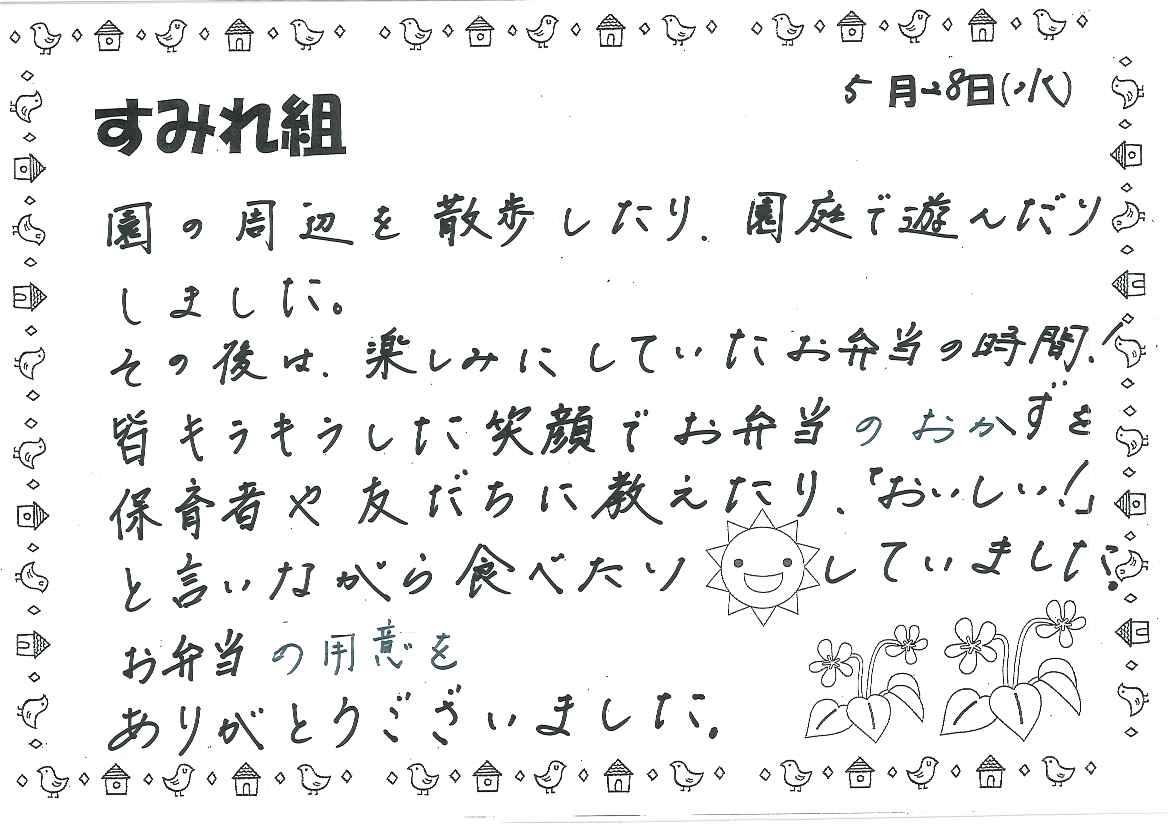 5月28日(水)
すみれ組
園の周辺を散歩したり、園庭で遊んだり
しました。
その後は、楽しみにしていたお弁当の時間!
皆キラキラした笑顔でお弁当のおかずを
保育者や友だちに教えたり、「おいしい!」
と言いながら食べたりしていました。
お弁当の用意を
ありがとうございました。